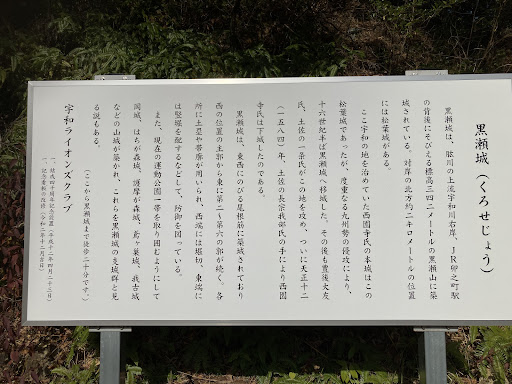 黒瀬城(くろせじょう)
黒瀬城は、肱川の上流宇和川右岸、JR卯之町駅
の背後にそびえる標高三四二メートルの黒瀬山に築
城されている。対岸の北方約二キロメートルの位置
には松葉城がある。
ここ宇和の地を治めていた西園寺氏の本城はこの
松葉城であったが、度重なる九州勢の侵攻により、
十六世紀半ば黒瀬城へ移城した。その後も豊後大友
氏、土佐の一条氏がこの地を攻め、ついに天正十二
(一五八四)年、土佐の長宗我部氏の手により西園
寺氏は下城したのである。
黒瀬城は、東西にのびる尾根筋に築城されており
西の位置の主郭から東に第二~第六の郭が続く。各
所に土塁や帯廓が用いられ、西端には堀切、東端に
は竪堀を配するなどして、防御を図っている。
また、現在の運動公園一帯を取り囲むようにして
岡城、はちが森城、護摩が森城、鳶ヶ巣城、我古城
などの山城が築かれ、これらを黒瀬城の支城群と見
る説もある。
(ここから黒瀬城まで徒歩二十分です。)
宇和ライオンズクラブ